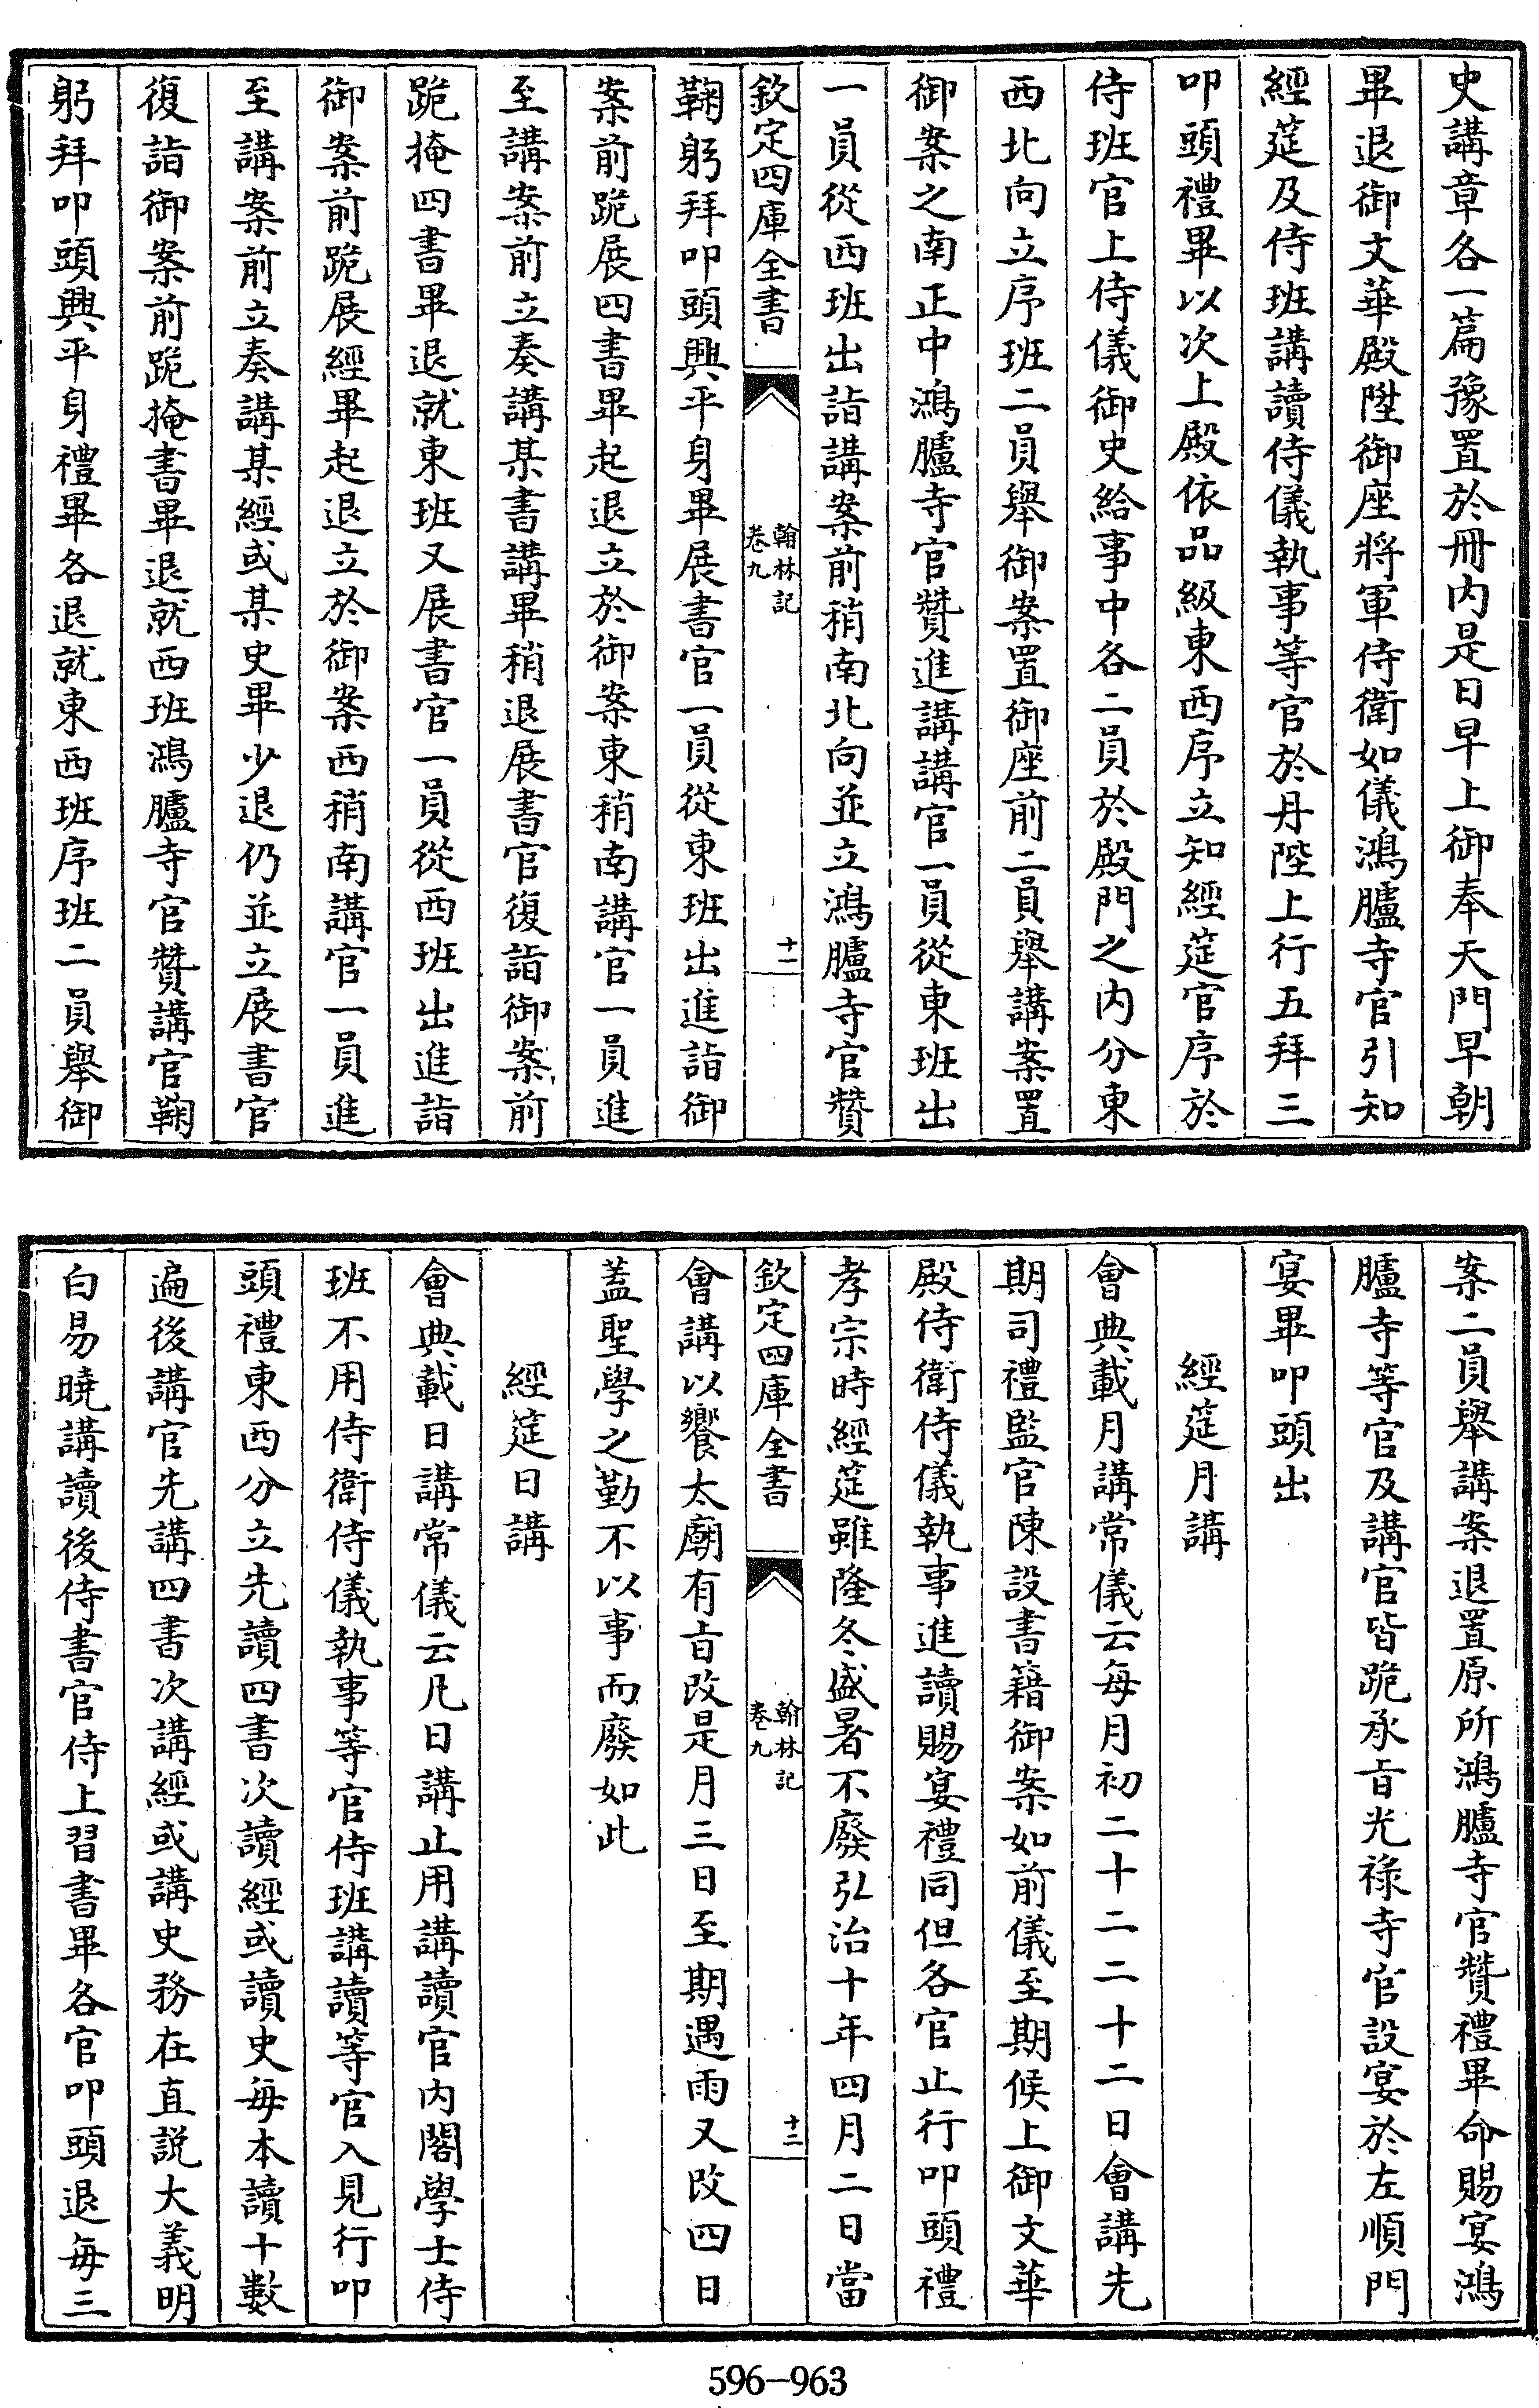 史講章各一篇豫置於冊内是日早上御奉天門早朝
畢退御文華殿陞御座將軍侍衛如儀鴻臚寺官引知
經筵及侍班講讀侍儀執事等官於丹陛上行五拜三
叩頭禮畢以次上殿依品級東西序立知經筵官序於
侍班官上侍儀御史給事中各二員於殿門之内分東
西北向立序班二員舉御案置御座前二員舉講案置
御案之南正中鴻臚寺官贊進講講官一員從東班出
一員從西班出詣講案前稍南北向並立鴻臚寺官贊
欽定四庫全書
翰林記
卷九
十一
鞠躬拜叩頭興平身畢展書官一員從東班出進詣御
案前跪展四書畢起退立於御案東稍南講官一員進
至講案前立奏講某書講畢稍退展書官復詣御案前
跪掩四書畢退就東班又展書官一員從西班出進詣
御案前跪展經畢起退立於御案西稍南講官一員進
至講案前立奏講某經或某史畢少退仍並立展書官
復詣御案前跪掩書畢退就西班鴻臚寺官贊講官鞠
躬拜叩頭興平身禮畢各退就東西班序班二員舉御
案二員舉講案退置原所鴻臚寺官贊禮畢命賜宴鴻
臚寺等官及講官皆跪承㫖光祿寺官設宴於左順門
宴畢叩頭出
經筵月講
會典載月講常儀云每月初二十二二十二日會講先
期司禮監官陳設書籍御案如前儀至期候上御文華
殿侍衛侍儀執事進讀賜宴禮同但各官止行叩頭禮
孝宗時經筵雖隆冬盛暑不廢弘治十年四月二日當
欽定四庫全書
翰林記
卷九
十二
會講以饗太廟有㫖改是月三日至期遇雨又改四日
蓋聖學之勤不以事而廢如此
經筵日講
會典載日講常儀云凡日講止用講讀官内閣學士侍
班不用侍衛侍儀執事等官侍班講讀等官入見行叩
頭禮東西分立先讀四書次讀經或讀史每本讀十數
遍後講官先講四書次講經或講史務在直説大義明
白易曉講讀後侍書官侍上習書畢各官叩頭退每三
596-963